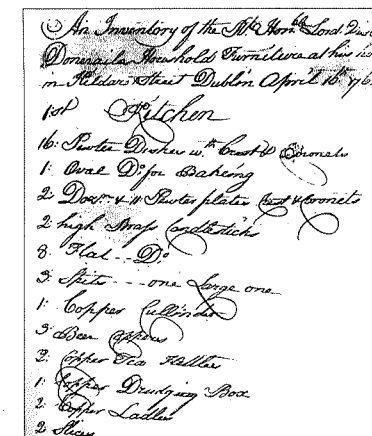 An Inventory of the Rt. Honble. Lord Visc
Doneraile Household Furniture at his ho
in Kildare Street Dublin April 16th 176
1st Kitchen
16: Pewter Dishes wth. Crest & Coronets
1: Oval Do. for Bakeing
2: Dozn. & Pewter plates Crest & Coronets
2: high Brass Candlesticks
8: Flat -- Do.
3: Spits --- one Large one
1: Copper Cullinder
3: Beer Coppers
2: Copper Tea Kettles
1: Copper Drudging Box
2: Copper Ladles
2: Slices